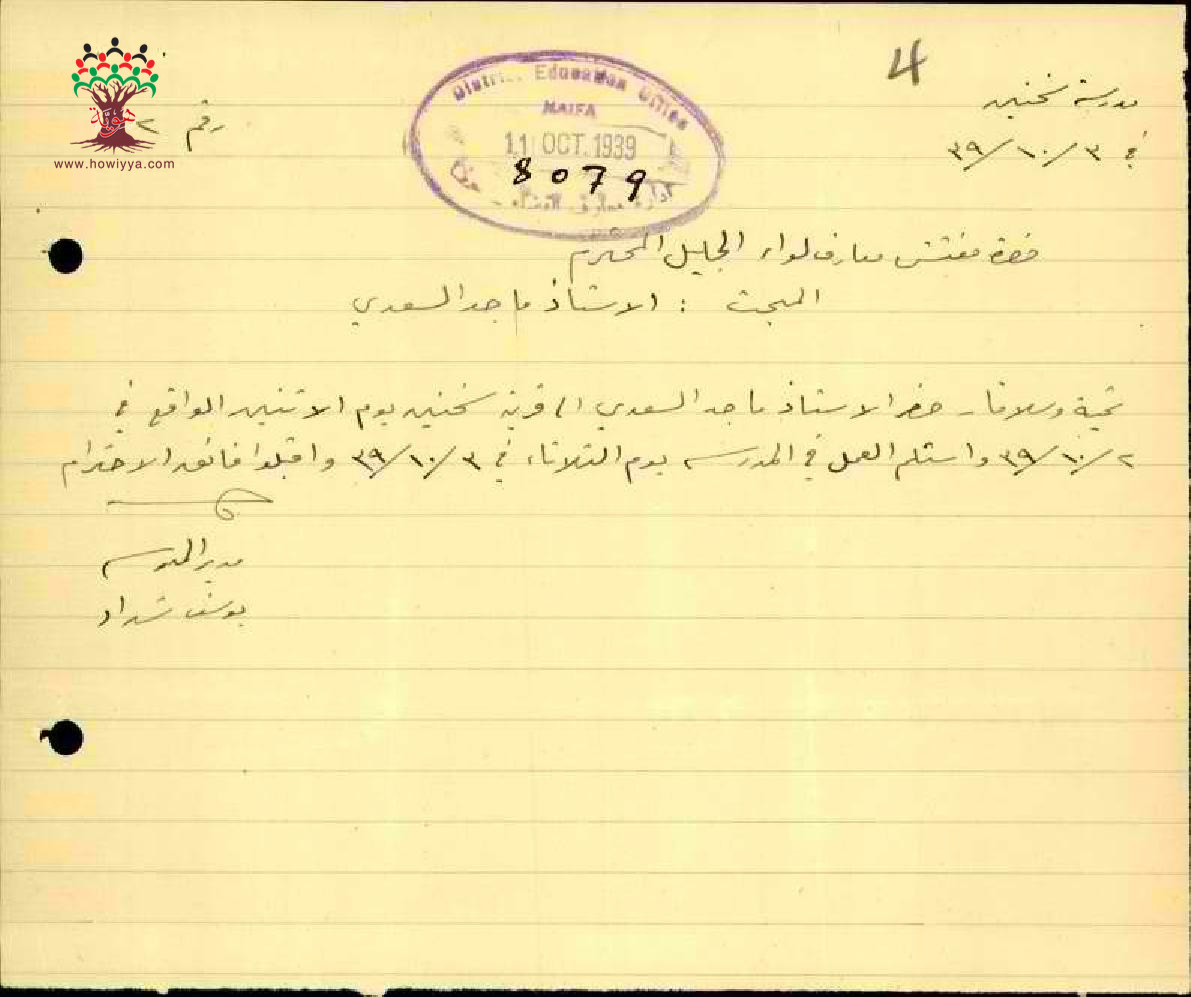 4
مدرسة سخنين
في ٣/١٠/٣٩
رقم ٢
District Education Office
HAIFA
11 OCT. 1939
8079
ادارة معارف
هوية
www.howiyya.com
حضرة مفتش معارف لواء الجليل المحترم
المبحث : الاستاذ ماجد السعدي
تحية وسلاما . حضر الاستاذ ماجد السعدي الى قرية سخنين يوم الاثنين الواقع في
٢/١٠/٣٩ واستلم العمل في المدرسه يوم الثلاثاء في ٣/١٠/٣٩ واقبلوا فائق الاحترام
مدير المدرسه
يوسف شداد